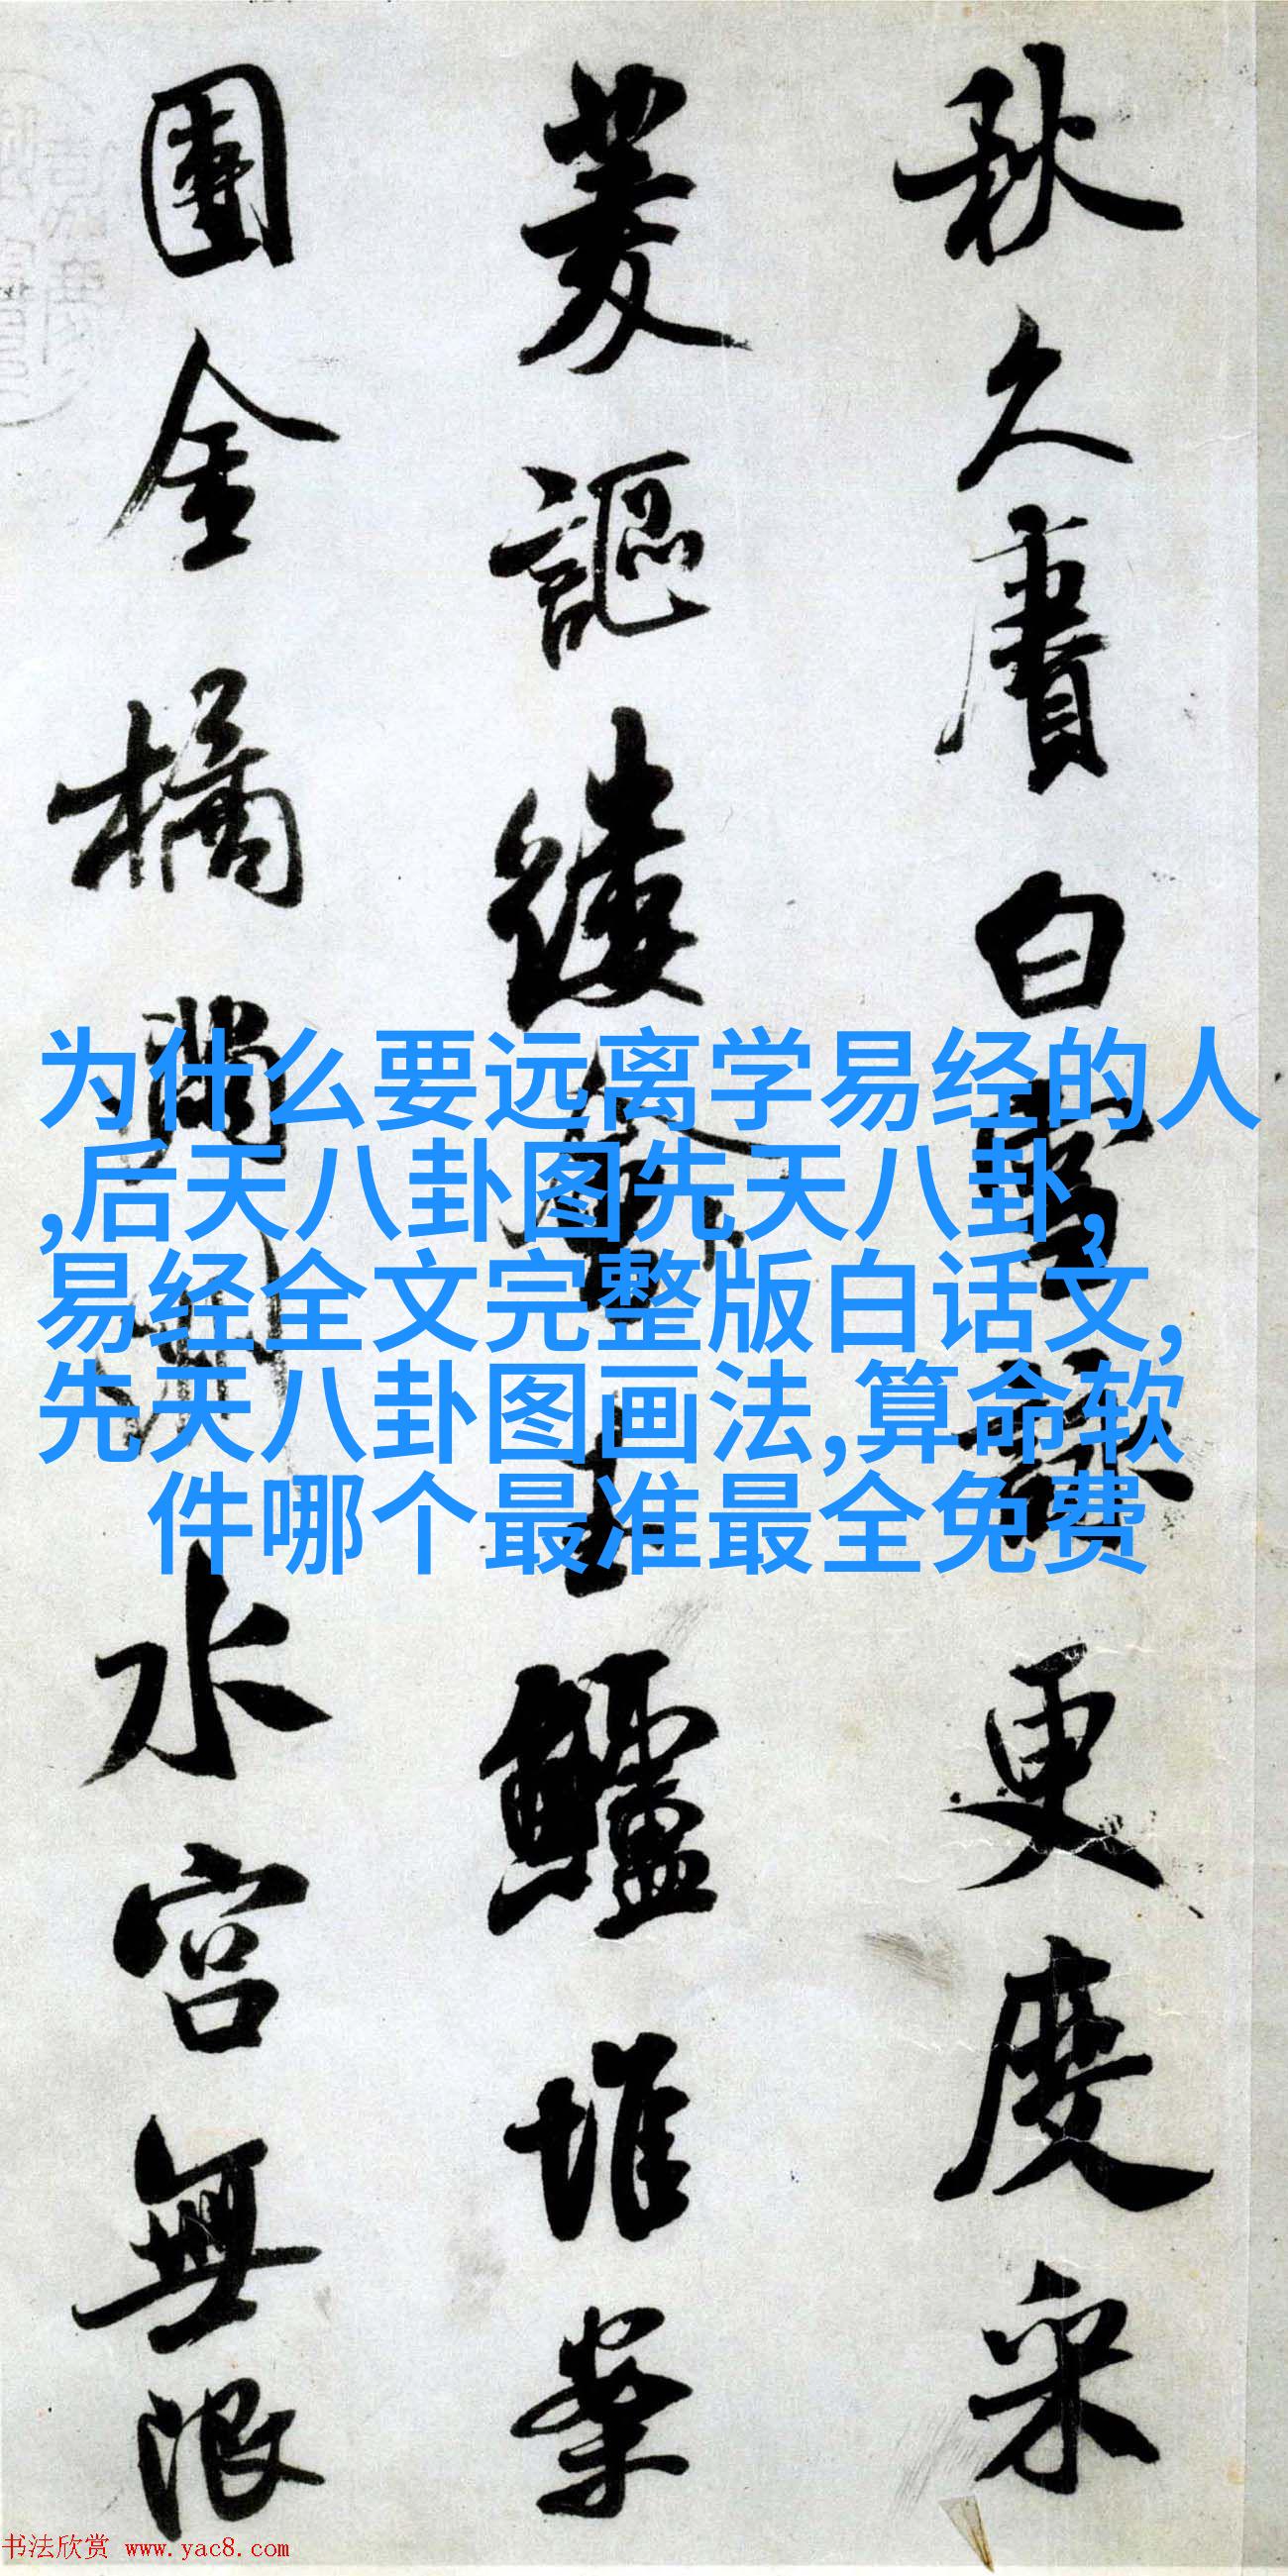 秋久賡白雪詠更度采
菱謳縷會玉鱸堆案
團金橘滿洲水宮無限
为什么要远离学易经的人
,后天八卦图先天八卦,
易经全文完整版白话文,
先天八卦图画法,算命软
件哪个最准最全免费
书法欣赏 www.yac8.com